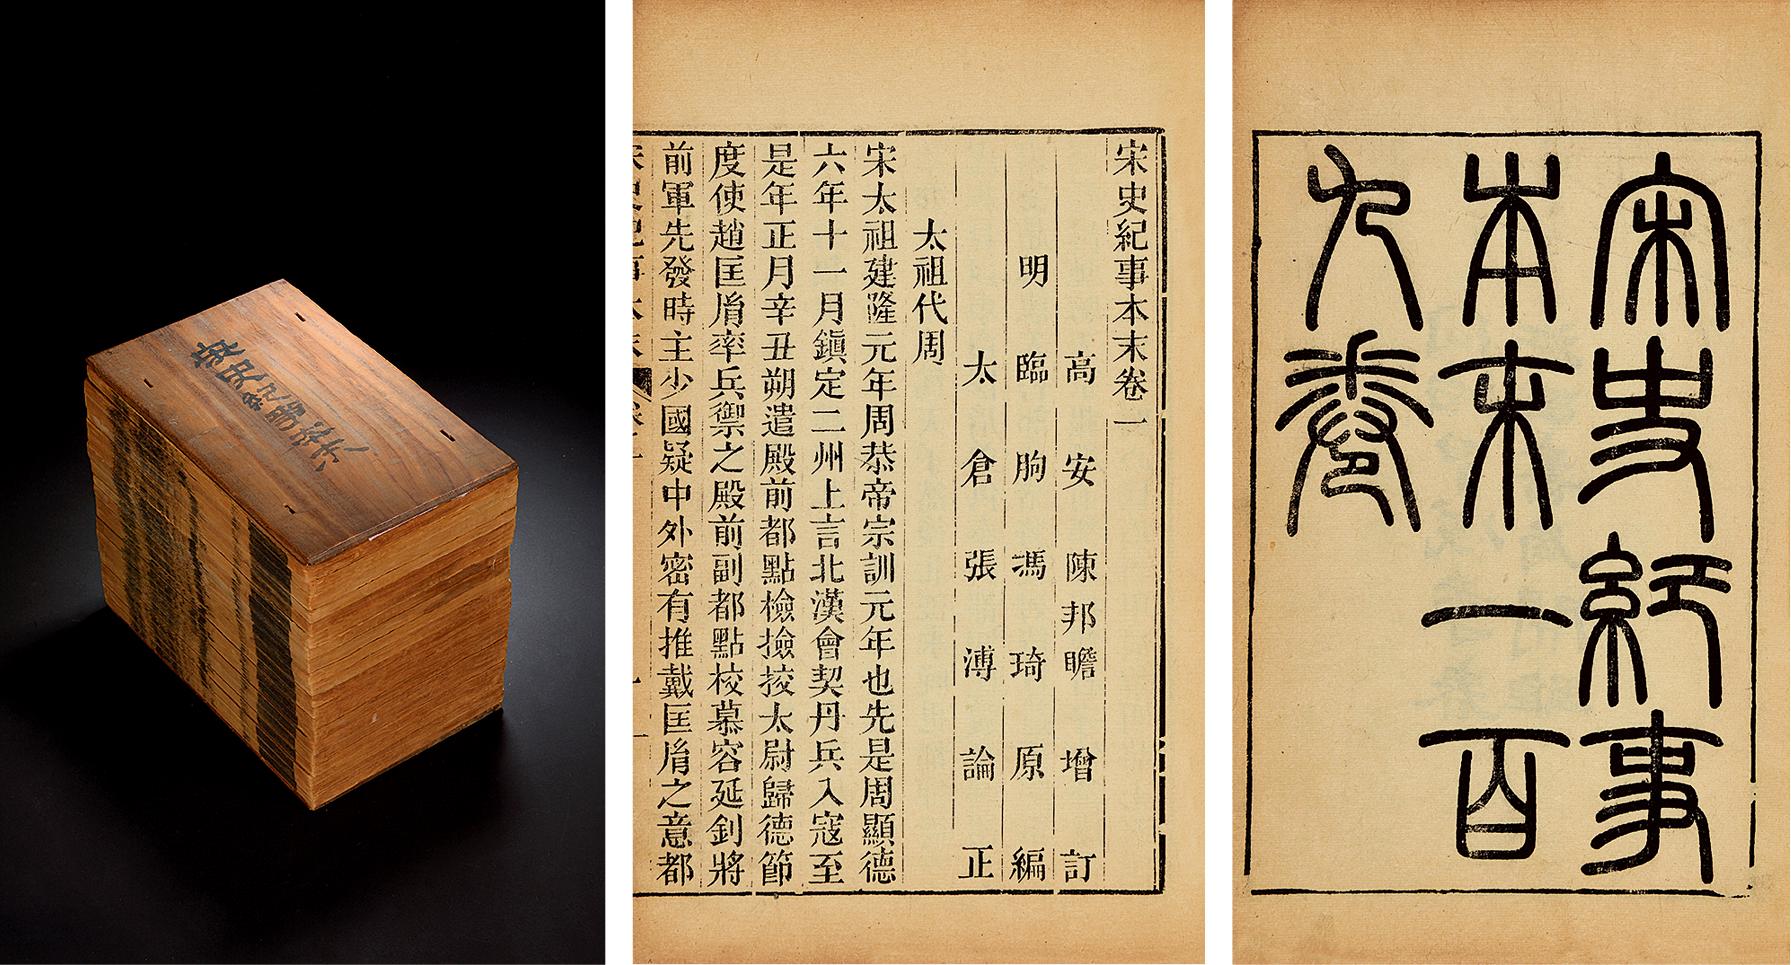 宋史紀事本末
宋史紀事本末卷一
高安陳邦瞻增訂
明臨朐馮琦原編
太倉張溥論正
太祖代周
宋太祖建隆元年周恭帝宗訓元年也先是周顯德
六年十一月鎮定二州上言北漢會契丹兵入寇至
是年正月辛丑朔遣殿前都點檢撿挍太尉歸德節
度使趙匡胤率兵禦之殿前副都點校慕容延釗將
前軍先發時主少國疑中外密有推戴匡胤之意都
宋史紀事本末
宋史紀事
本末一百
九卷